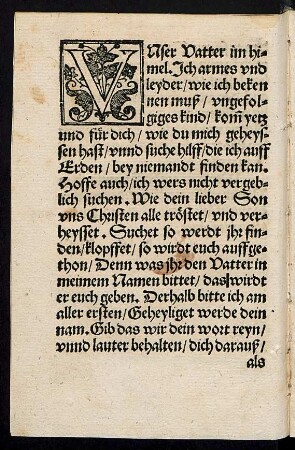 VNser Vatter im hi-
mel. Ich armes vnd
leyder / wie ich beken
nen muß / vngefol-
giges kind / kom̃ yetz
vnd für dich / wie du mich geheys-
sen hast / vnnd suche hilff / die ich auff
Erden / bey niemandt finden kan.
Hoffe auch / ich wers nicht vergeb-
lich suchen. Wie dein lieber Son
vns Christen alle tröstet / vnd ver-
heysset. Suchet so werdt jhr fin-
den / klopffet / so wirdt euch auffge-
thon / Denn was jhr den Vatter in
meinem Namen bittet / das wirdt
er euch geben. Derhalb bitte ich am
aller ersten / Geheyliget werde dein
nam. Gib das wir dein wort reyn /
vnnd lauter behalten / dich darauß /
als